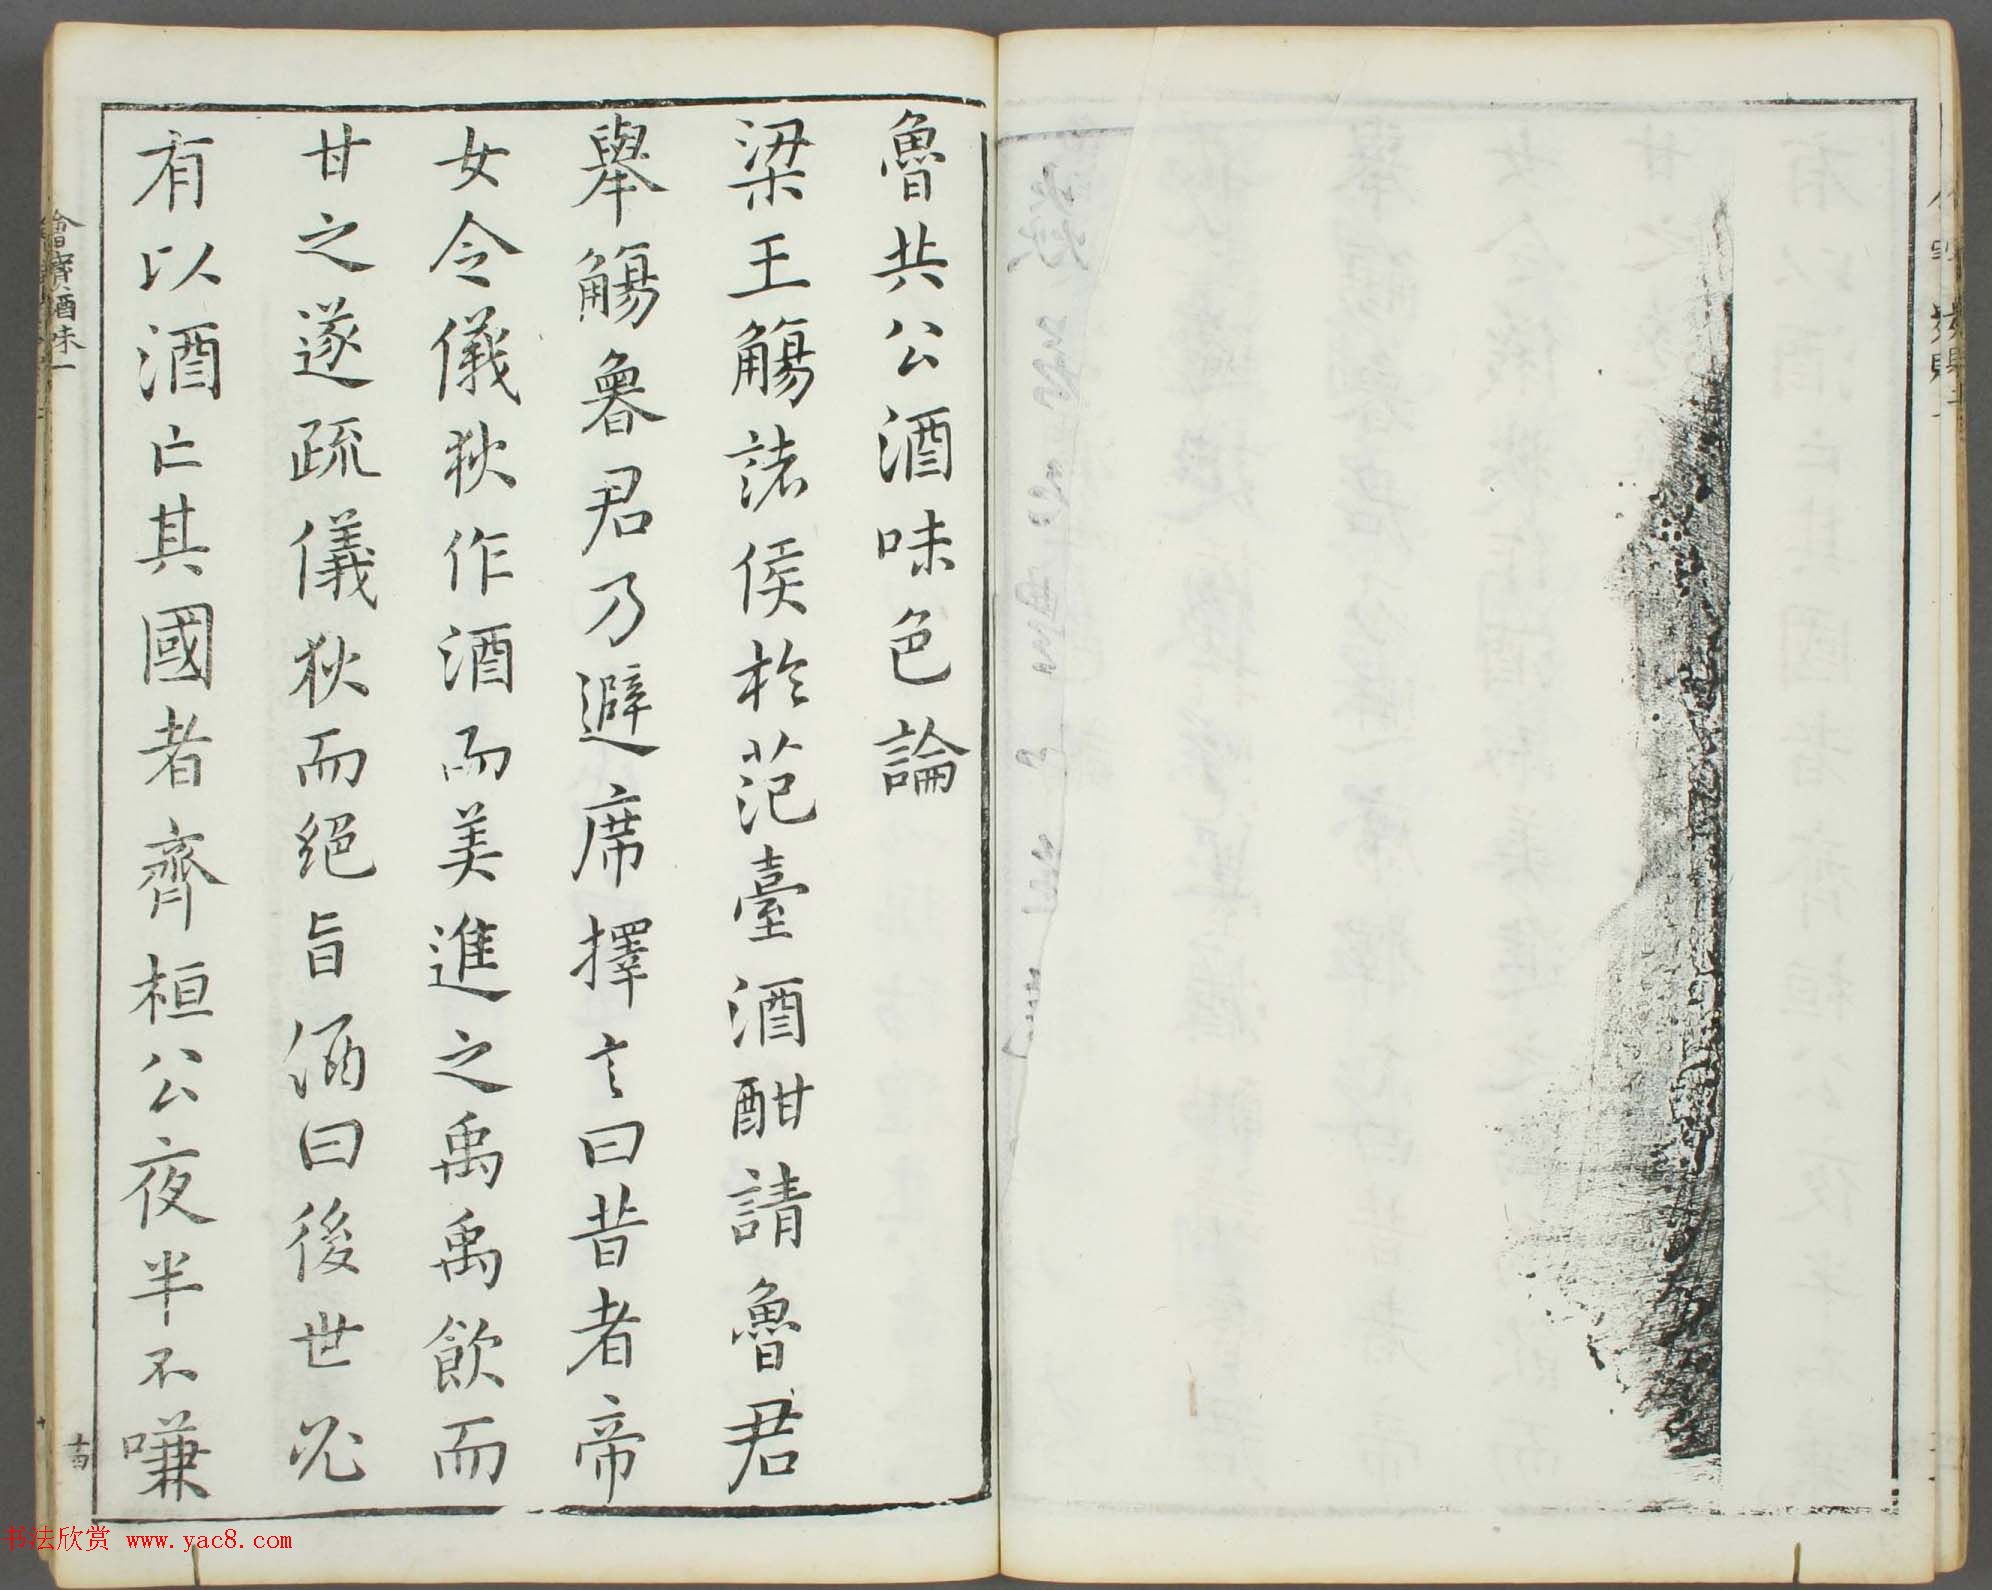 魯共公酒味色論
梁王觴諸侯於范臺酒酣請魯君
舉觴魯君乃避席擇言曰昔者帝
女令儀狄作酒而美進之禹禹飲而
甘之遂疏儀狄而絕旨酒曰後世必
有以酒亡其國者齊桓公夜半不嗛
书法欣赏 www.yac8.com